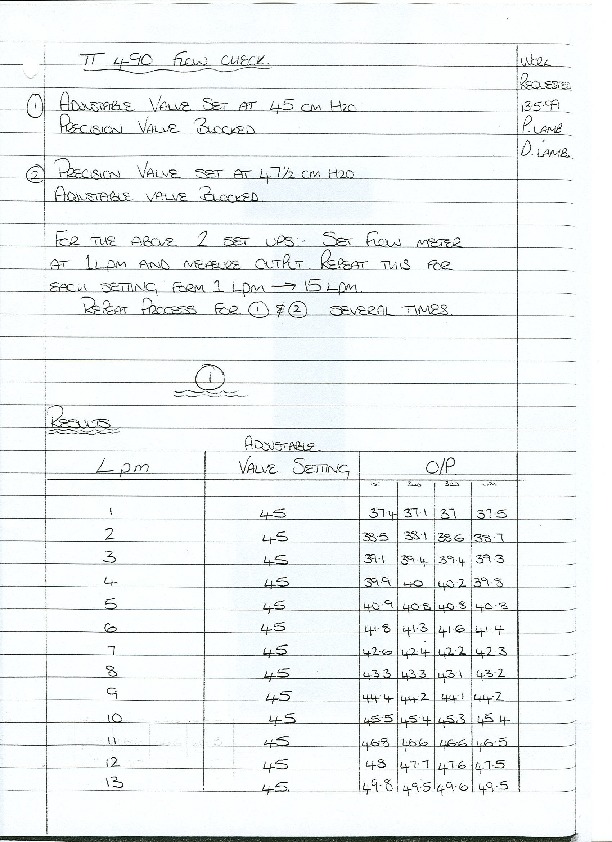 TT 490 FLOW CHECK.
WORK
REQUESTED
13599
P. LAMB
D. LAMB
① ADJUSTABLE VALVE SET AT 45 CM H2O
PRECISION VALVE BLOCKED
② PRECISION VALVE SET AT 47 1/2 CM H2O
ADJUSTABLE VALVE BLOCKED.
FOR THE ABOVE 2 SET UPS:- SET FLOW METER
AT 1 LPM AND MEASURE OUTPUT. REPEAT THIS FOR
EACH SETTING FORM 1 LPM → 15 LPM.
REPEAT PROCESS FOR ① & ② SEVERAL TIMES.
①
RESULTS
Lpm ADJUSTABLE VALVE SETTING O/P
1 45 37.4 37.1 37 37.5
2 45 38.5 38.1 38.6 38.7
3 45 39.1 39.4 39.4 39.3
4 45 39.9 40 40.2 39.8
5 45 40.9 40.8 40.8 40.8
6 45 41.8 41.3 41.6 41.4
7 45 42.6 42.4 42.2 42.3
8 45 43.3 43.3 43.1 43.2
9 45 44.4 44.2 44.1 44.2
10 45 45.5 45.4 45.3 45.4
11 45 46.8 46.6 46.6 46.5
12 45 48 47.7 47.6 47.5
13 45 49.8 49.5 49.6 49.5